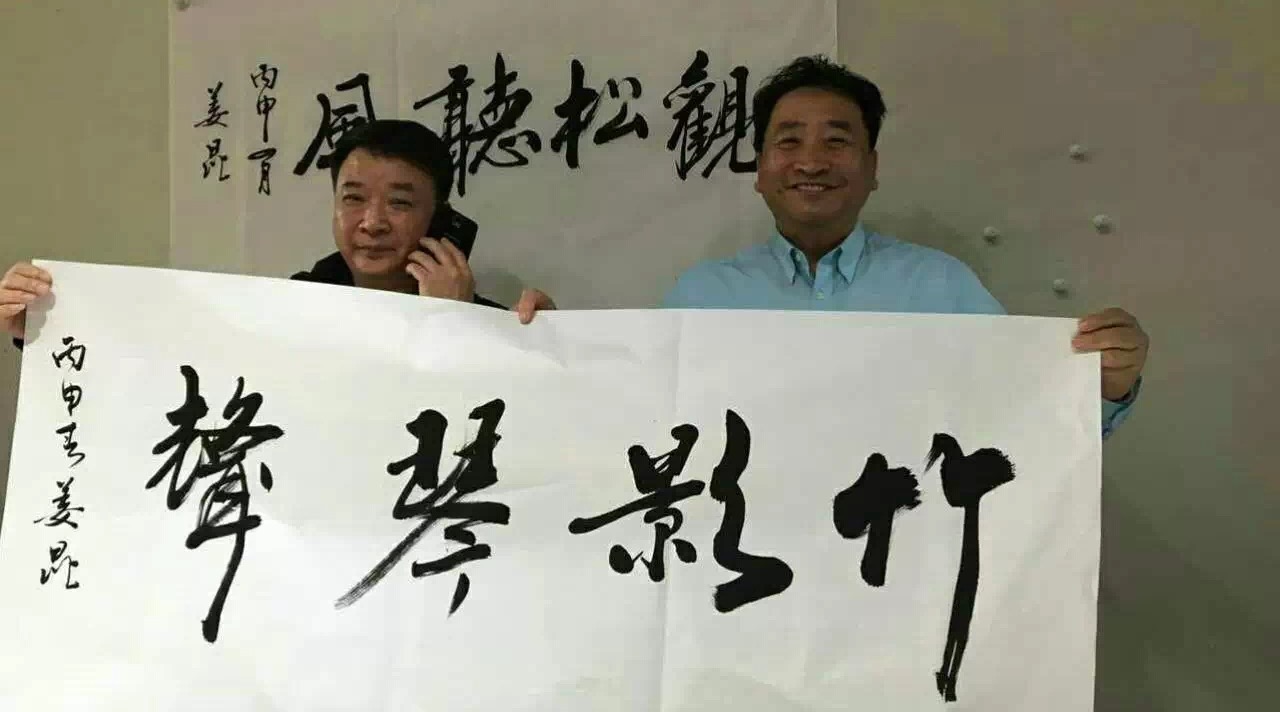 觀松聽風
丙申一月
姜昆
竹影琴聲
丙申春姜昆